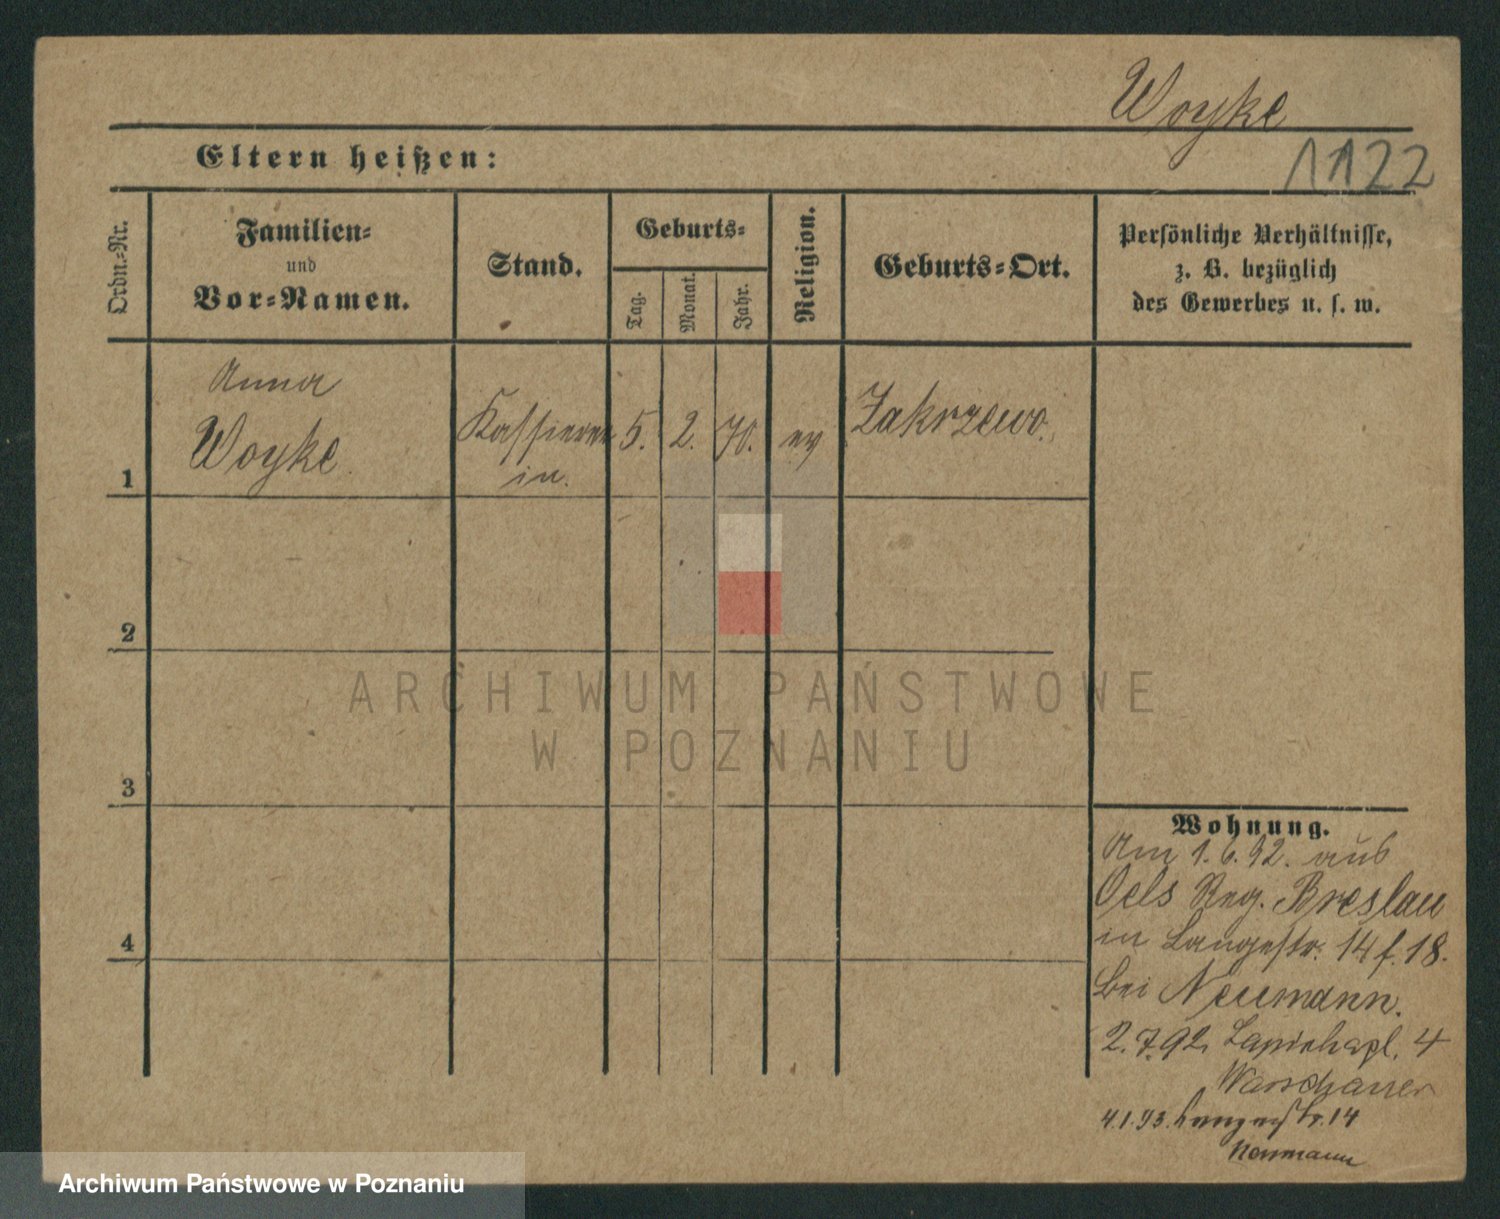 Woyke
Eltern heißen:
1122
Ordn.-Nr.
Familien-
und
Vor-Namen.
Stand.
Geburts-
Tag.
Monat.
Jahr.
Religion.
Geburts-Ort.
Persönliche Verhältnisse,
z. B. bezüglich
des Gewerbes u. s. w.
Anna
Woyke
Kassierer
in.
5. 2. 70. ev
Zakrzewo.
1
2
3
4
Wohnung.
Am 1.6.92. aus
Oels Reg. Breslau
in Langestr. 14 f. 18.
bei Neumann.
2.7.92. Sapiehapl. 4
Warschauer
4.1.93. Langestr. 14
Neumann
ARCHIWUM PAŃSTWOWE
W POZNANIU
Archiwum Państwowe w Poznaniu